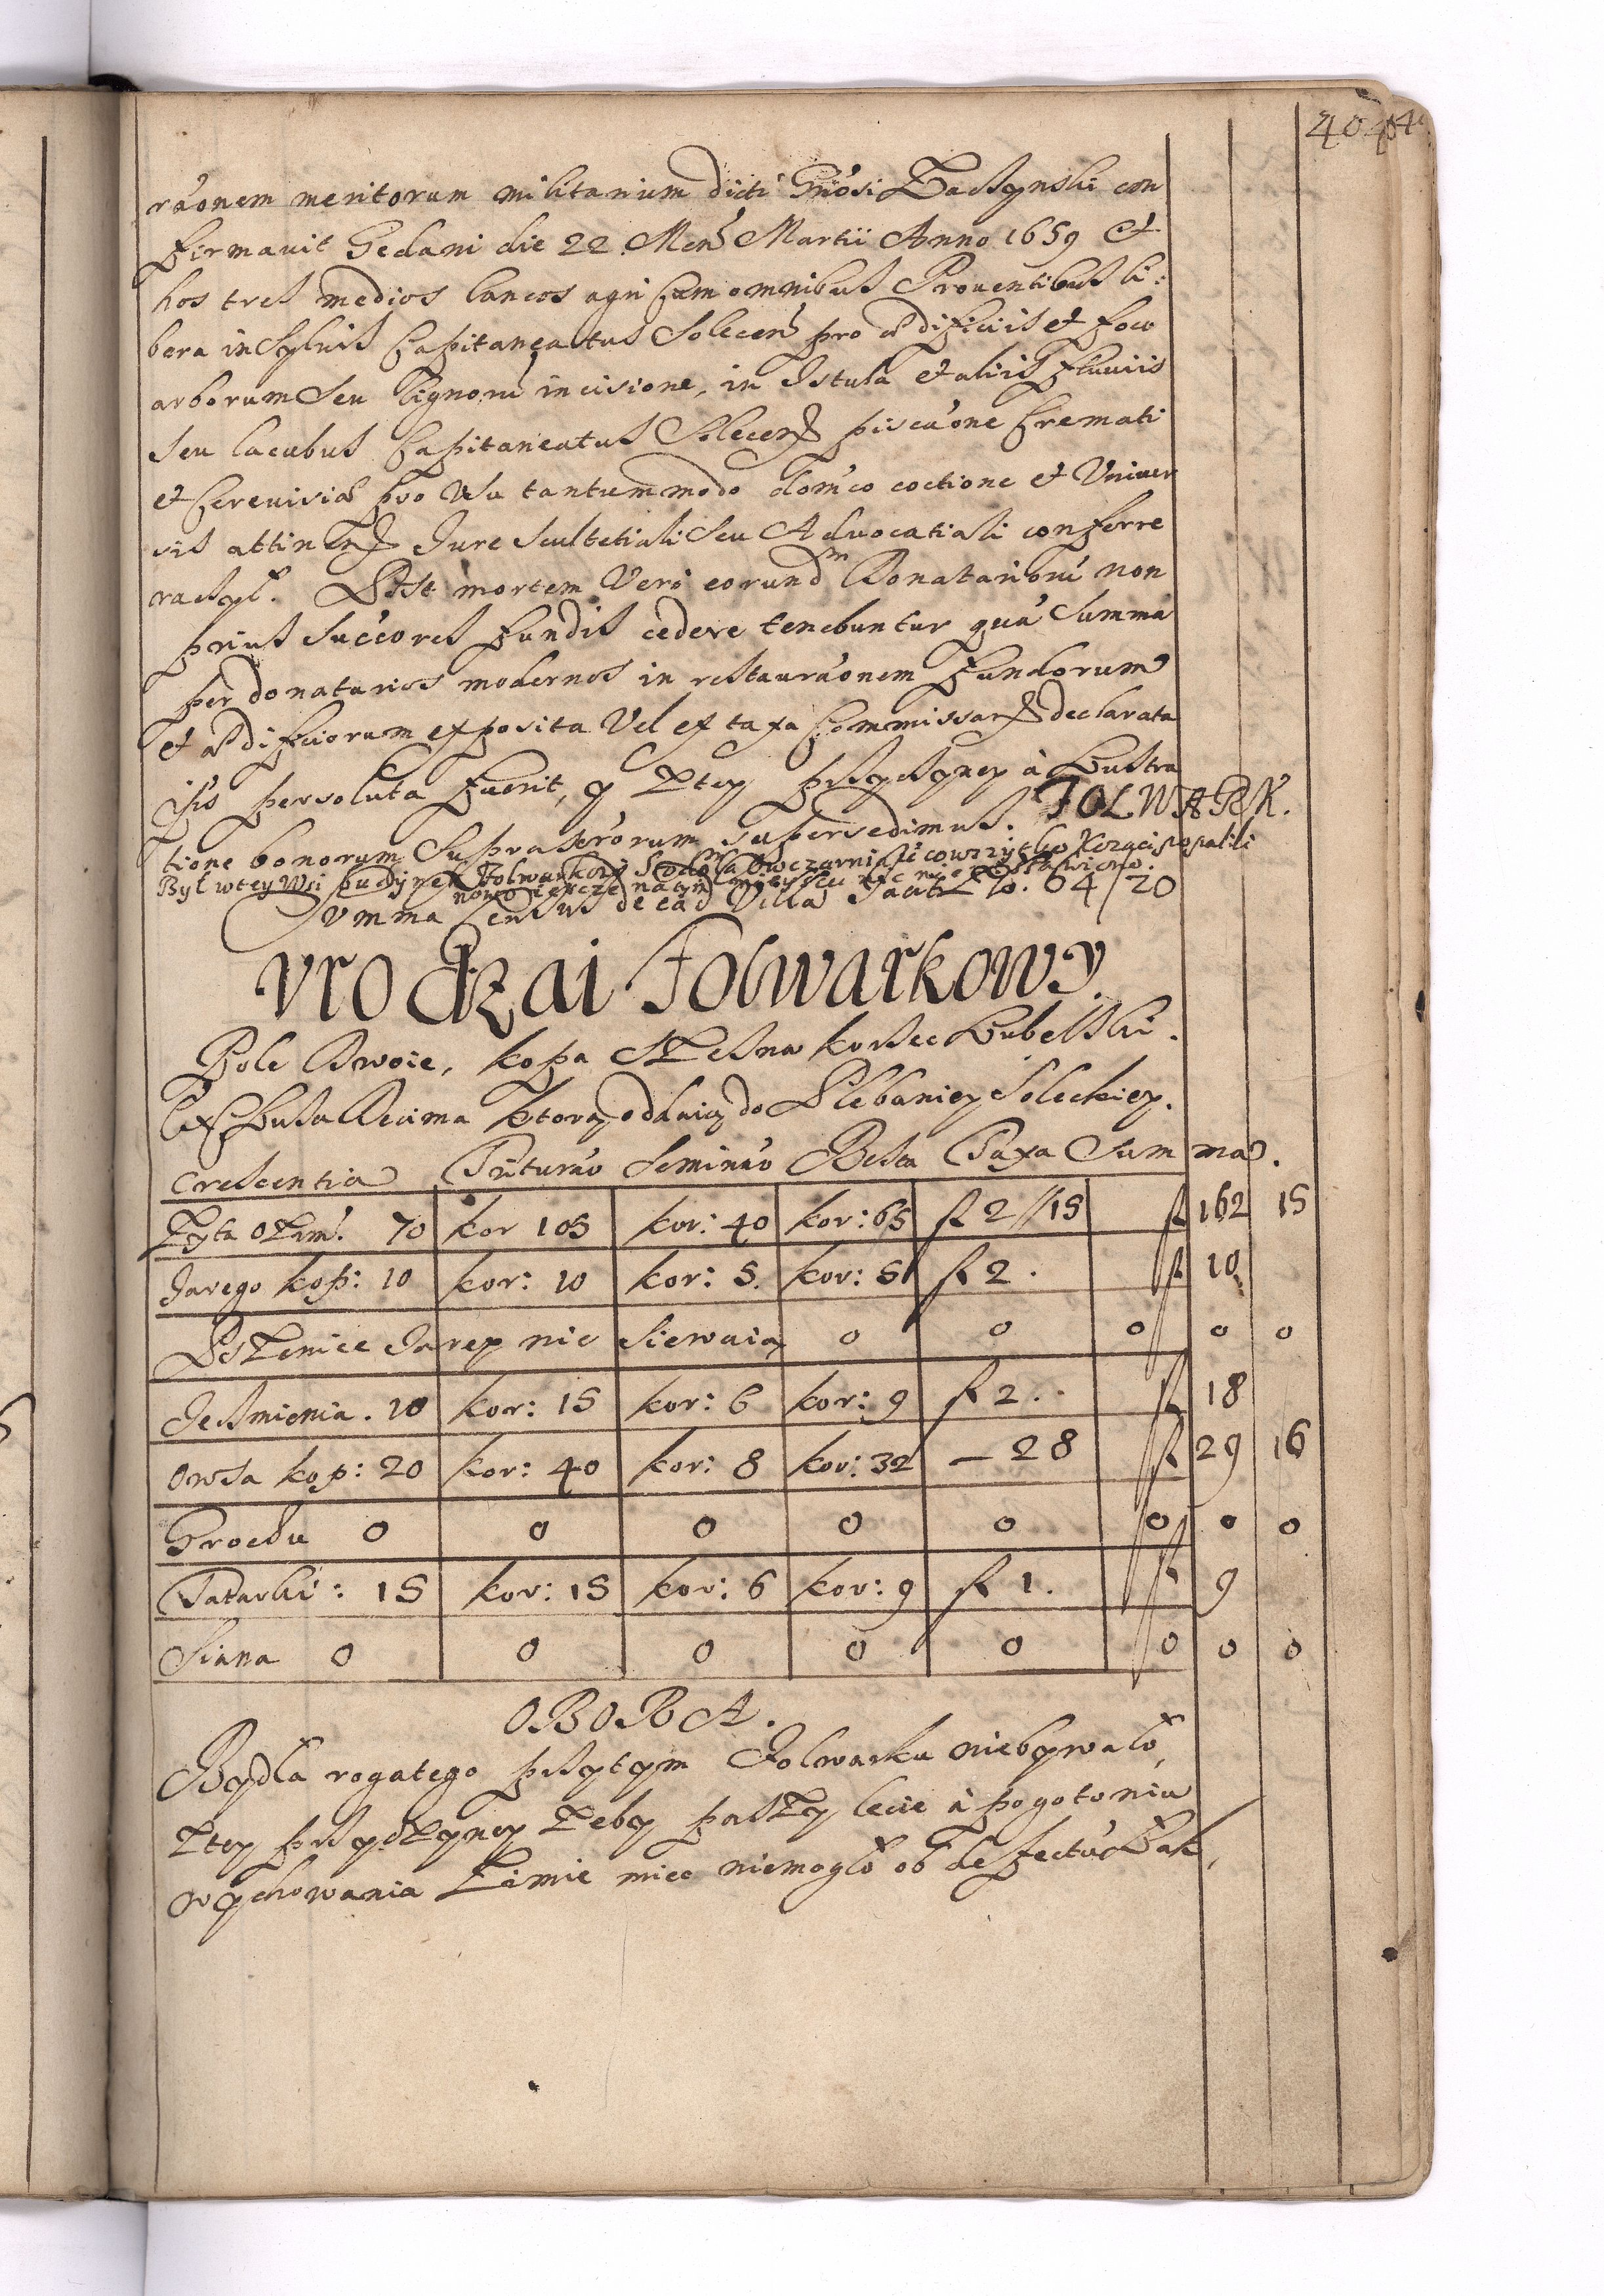 404
ráonem meritorum militarium dicti Gnósi con
firmauit Gedani die 22 Mens Martii Anno 1659 Et
hos tres medios laneos agri Cum omnibus Prouentibus li:
bera in Syluis Capitaneatus Solecen pro ædificiis et foco
arborum Seu Lignorú incisione, in Istula et aliis Fluuiis
seu lacubus Capitaneatus Solecens piscáone Cremati
et Cereuisiæ pro Usu tantummodo domco coctione et Vniuer
sis attinens Jure Scultetiali Seu Aduocatiali conferre
Post mortem Vero eorundm Donatarioru non
prius Succores fundis cedere tenebuntur quá Summa
per donatarios modernos in restauráonem Fundorum
et ædificiorum exposita Vel ex taxa Commissars declarata
ipsis persoluta fuerit, y Ztey przyczyney à Lustra
tione bonorum Suprascrórum Supersedimus. FOLWARK.
Był wtey Wsi budynek Folwarkowy Stodoła Owczarnia co wszytko Kozacy popalili
nowo ieszcze natym mieyscu nic nie postawiono.
Summa Census de ead Villa facit Zł. 64/20
Vrodzai Folwarkowy.
Pole Dwoie, kopa Zezna korzec Lubelski.
Decima ktorą oddaią do Plebaniey Soleckiey.
Crescentia Trituráo Semináo Resta Taxa Sum ma.
Zyta Ozim. 70 kor 105 kor: 40 kor: 65 fl 2//15 fl 162 15
Jarego kop: 10 kor: 10 kor: 5. kor: 5 fl 2. fl 10
Pszenice Jarey nie siewaią 0 0 0 0 0
Jęczmienia. 10 kor: 15 kor: 6 kor: 9 fl 2.. fl 18
Owsa kop: 20 kor: 40 kor: 8 kor: 32 — 28 fl 29 16
Grochu 0 0 0 0 0 0 0 0
Tatarki: 15 kor: 15 kor: 6 kor: 9 fl 1. fl 9
Siana 0 0 0 0 0 0 0 0
OBORA.
Bydła rogatego przytym Folwarku niebywało,
Ztey przyczyney Zeby paszy lecie à pogotowiu
wychowania Zimie miec niemogło ob defectu Łąk,